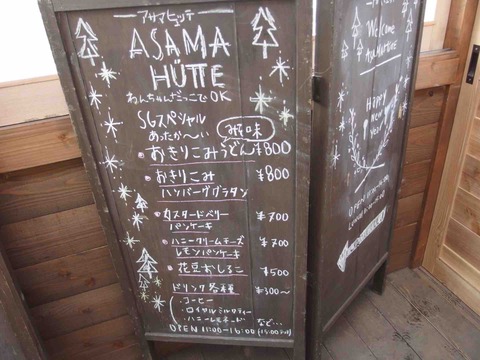 アサマヒュッテ
ASAMA
HÜTTE
わんちゃんだっこでOK
SGスペシャル
あったか〜い
みそ味
・おきりこみうどん ¥800
・おきりこみ
ハンバーググラタン ¥800
・カスタードベリー
パンケーキ ¥700
・ハニークリームチーズ
レモンパンケーキ ¥700
・花豆おしるこ ¥500
ドリンク各種 ¥300〜
・コーヒー
・ロイヤルミルクティー
・ハニーレモネード など…
OPEN 11:00-16:00
Welcome
Happy
New
Year
OPEN